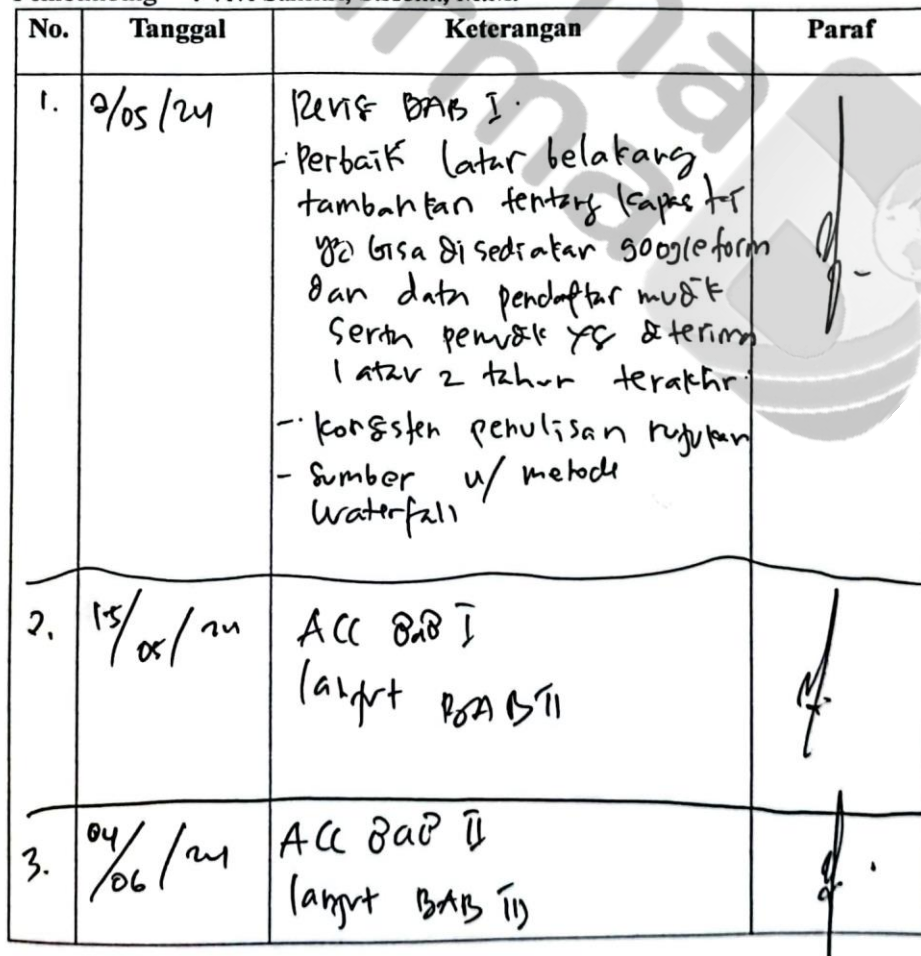 No. Tanggal Keterangan Paraf
1. 2/05/24 Revisi BAB I.
- Perbaiki latar belakang
tambahkan tentang kapasitas
yg bisa disediakan google form
dan data pendaftar mudik
serta pemudik yg diterima
latar 2 tahun terakhir.
- konsisten penulisan rujukan
- Sumber u/ metode
waterfall
2. 15/05/24 ACC BAB I
lanjut BAB II
3. 04/06/24 ACC BAB II
lanjut BAB III